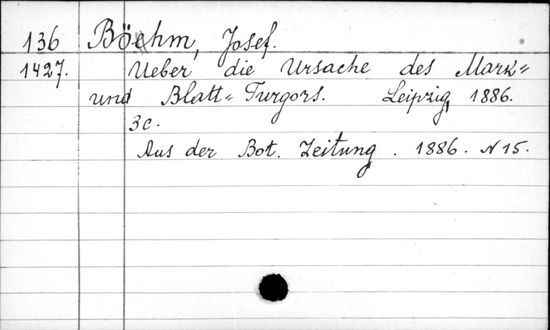 136 Böehm, Josef.
1427. Ueber die Ursache des Mark=
und Blatt=Turgors. Leipzig, 1886.
3c.
Aus der Bot. Zeitung. 1886. N 15.